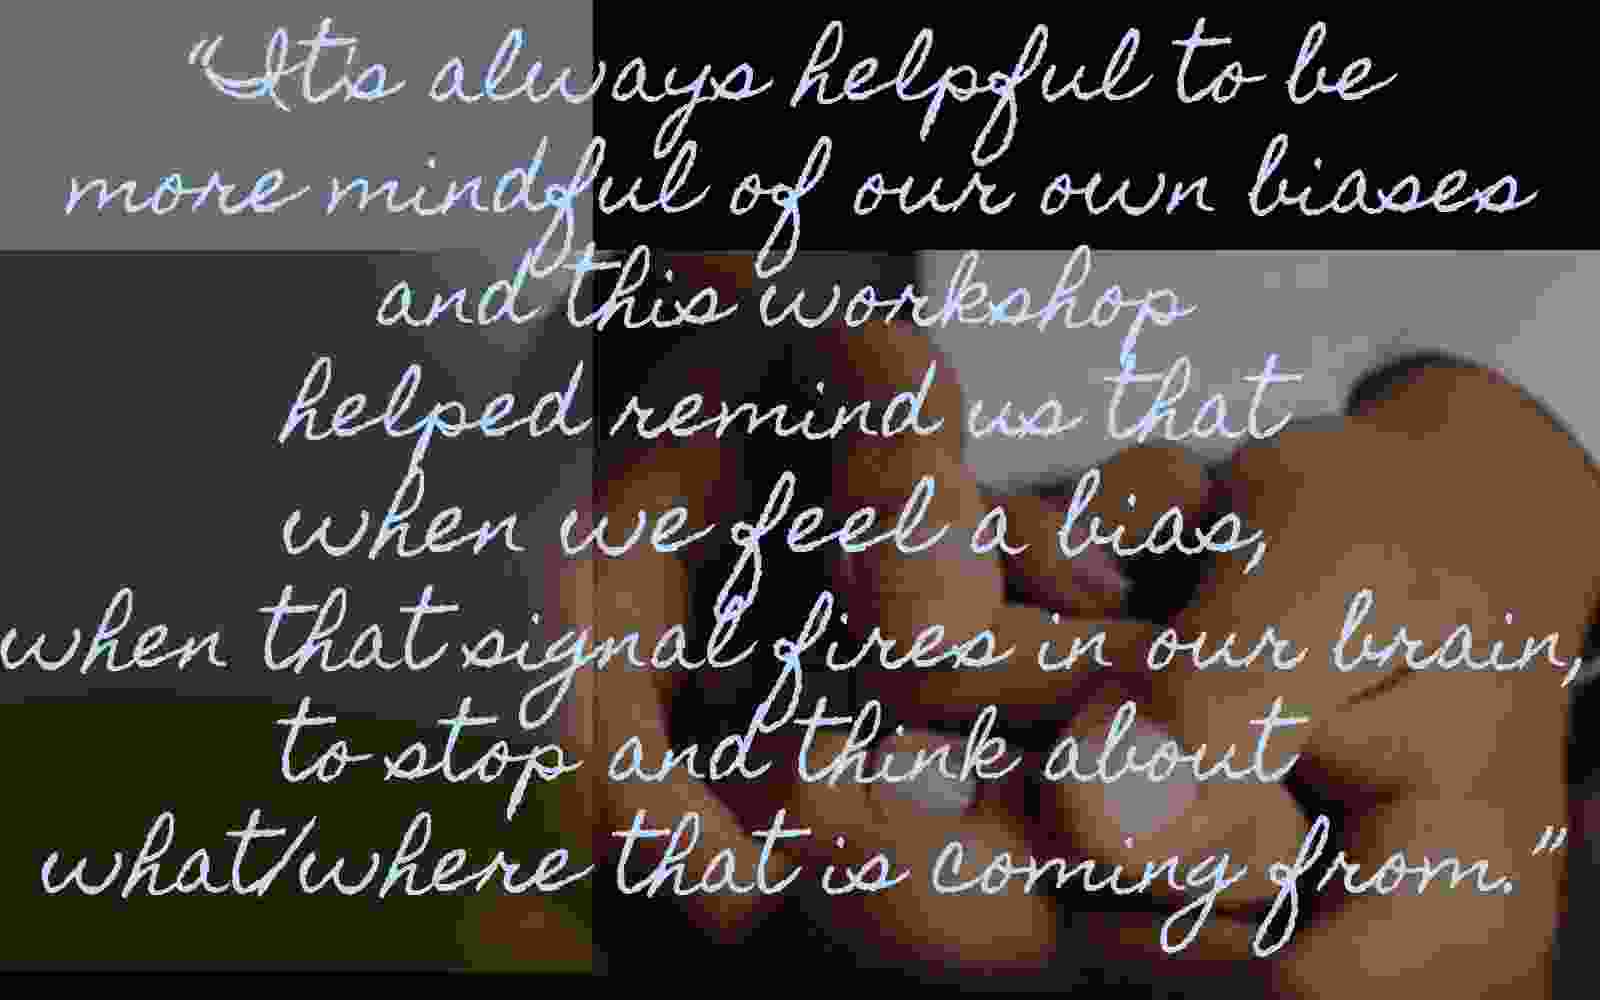 “It's always helpful to be
more mindful of our own biases
and this workshop
helped remind us that
when we feel a bias,
when that signal fires in our brain,
to stop and think about
what/where that is coming from.”